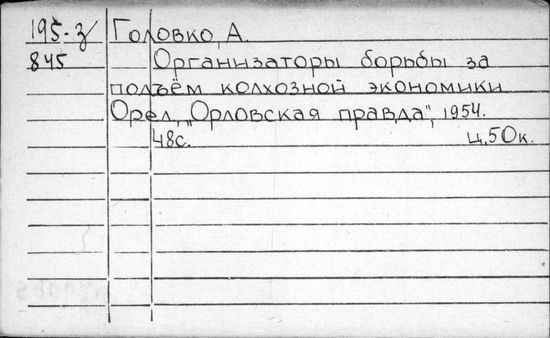 195-з Головко, А.
845 Организаторы борьбы за
подъём колхозной экономики
Орел, "Орловская правда", 1954.
48с. ц.50к.